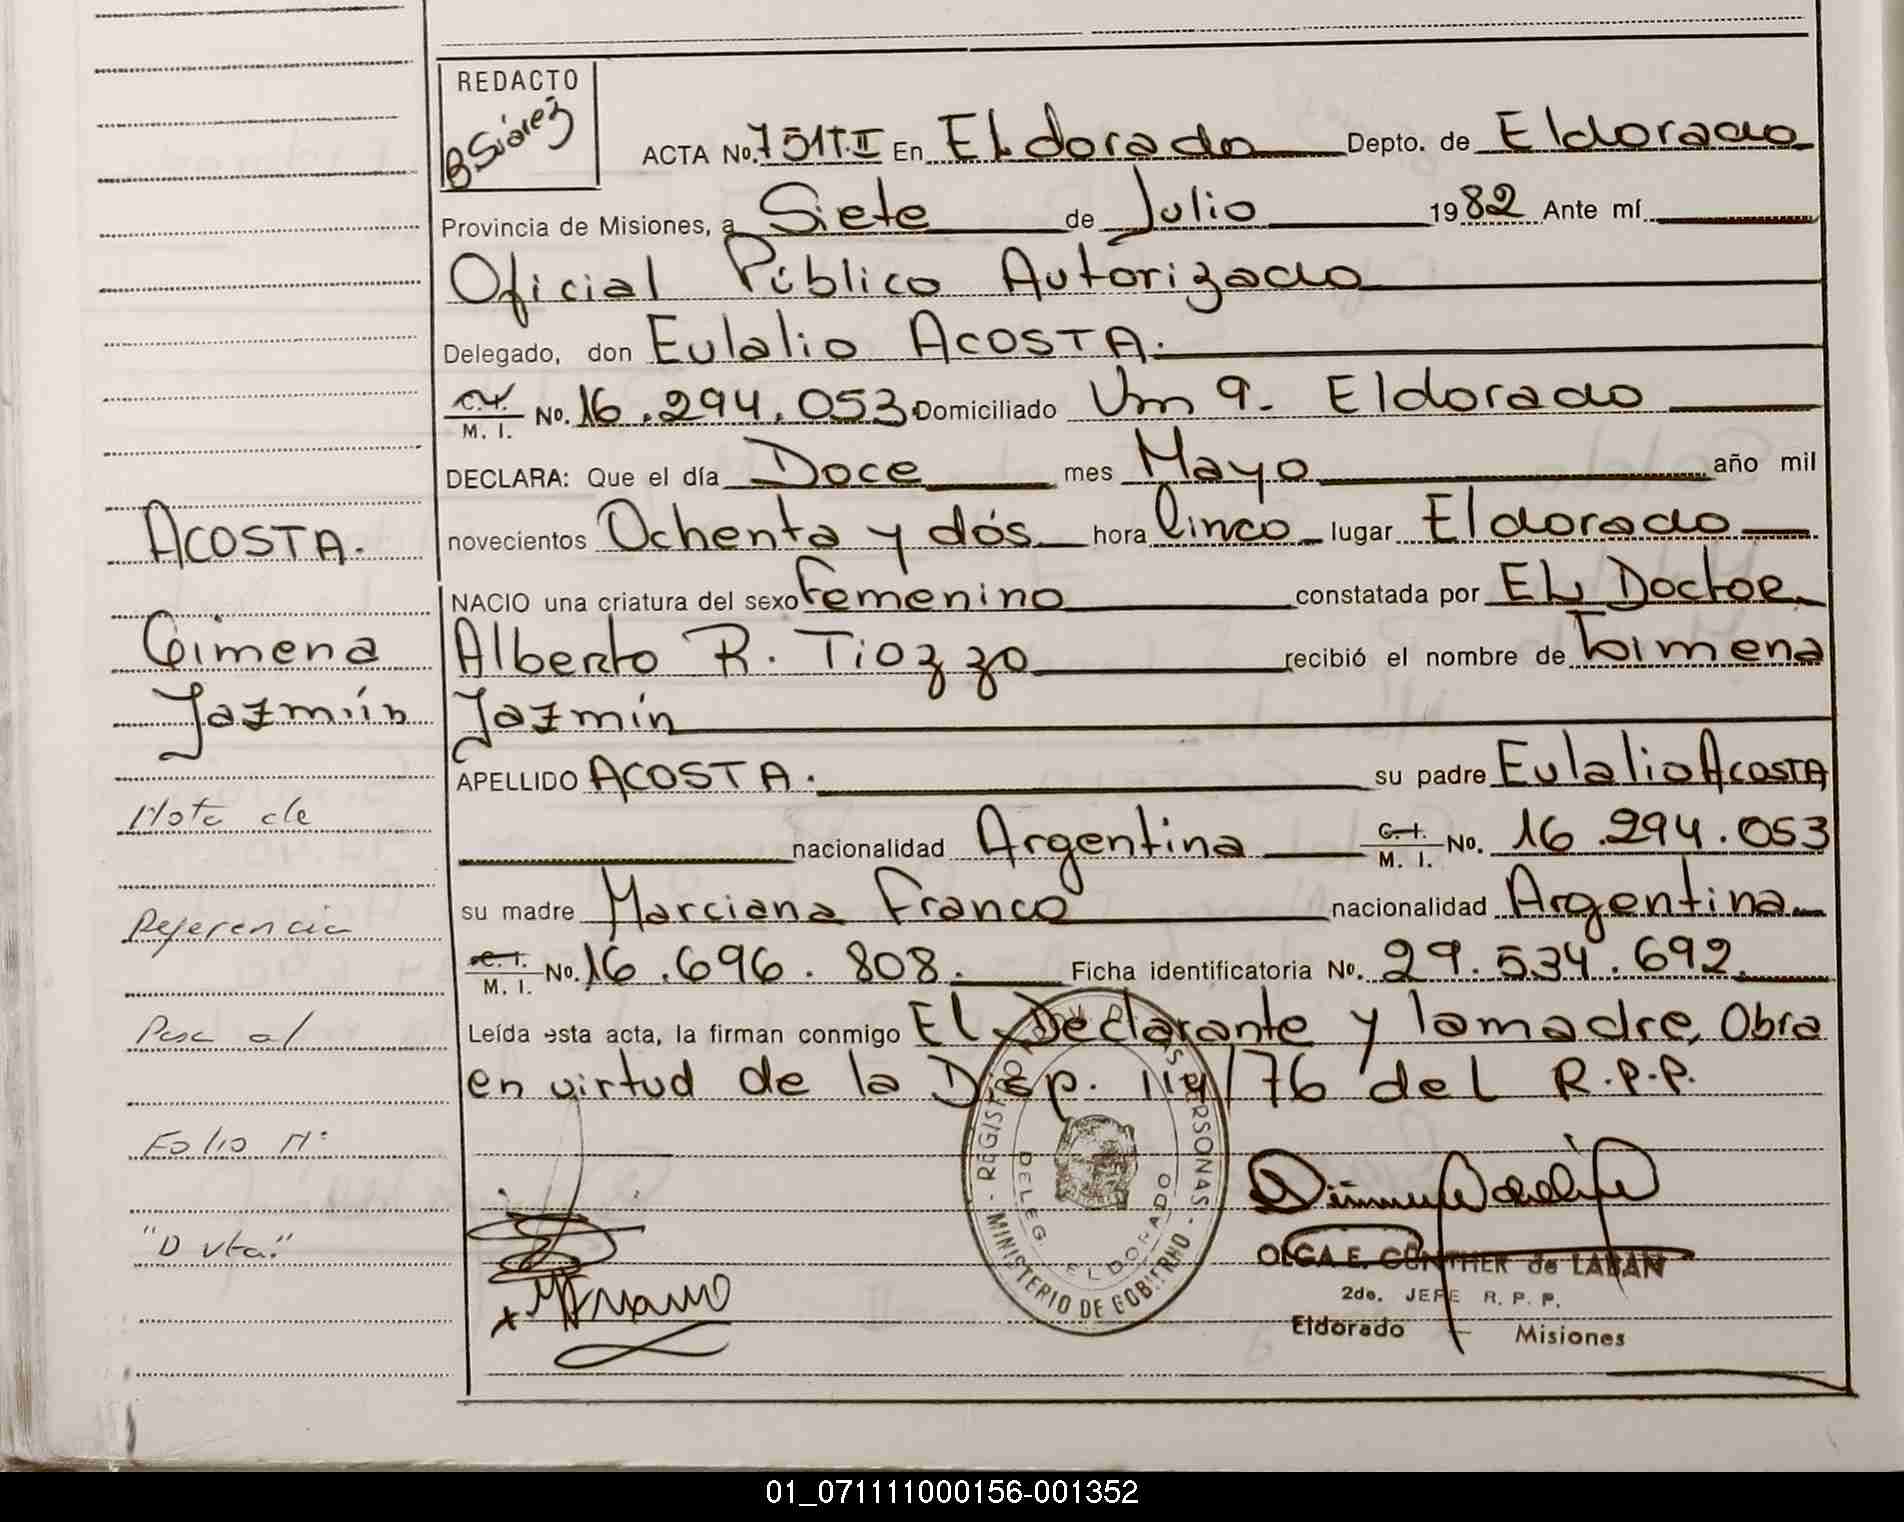 REDACTO
BSuárez
ACTA No. 751T.II En Eldorado Depto. de Eldorado
Provincia de Misiones, a Siete de Julio 1982 Ante mí
Oficial Público Autorizado
Delegado, don Eulalio ACOSTA.
C.I. M. I. No. 16.294.053 Domiciliado Km 9- Eldorado
DECLARA: Que el día Doce mes Mayo año mil
novecientos Ochenta y dós hora Cinco lugar Eldorado
NACIO una criatura del sexo Femenino constatada por EL Doctor
Alberto R. Tiozzo recibió el nombre de Gimena
Jazmín
APELLIDO ACOSTA. su padre Eulalio ACOSTA
nacionalidad Argentina C.I. M. I. No. 16.294.053
su madre Marciana Franco nacionalidad Argentina
C.I. M. I. No. 16.696.808. Ficha identificatoria No. 29.534.692
Leída esta acta, la firman conmigo El Declarante y la madre, Obra
en virtud de la Disp. 114/76 del R.P.P.
ACOSTA.
Gimena
Jazmín
Nota de
Referencia
Pasa al
Folio N°
"D vta."
REGISTRO PERSONAS
MINISTERIO DE GOBIERNO
DELEG. ELDORADO
OLGA E. GÜNTHER de LABAN
2do. JEFE R. P. P.
Eldorado - Misiones
01_071111000156-001352